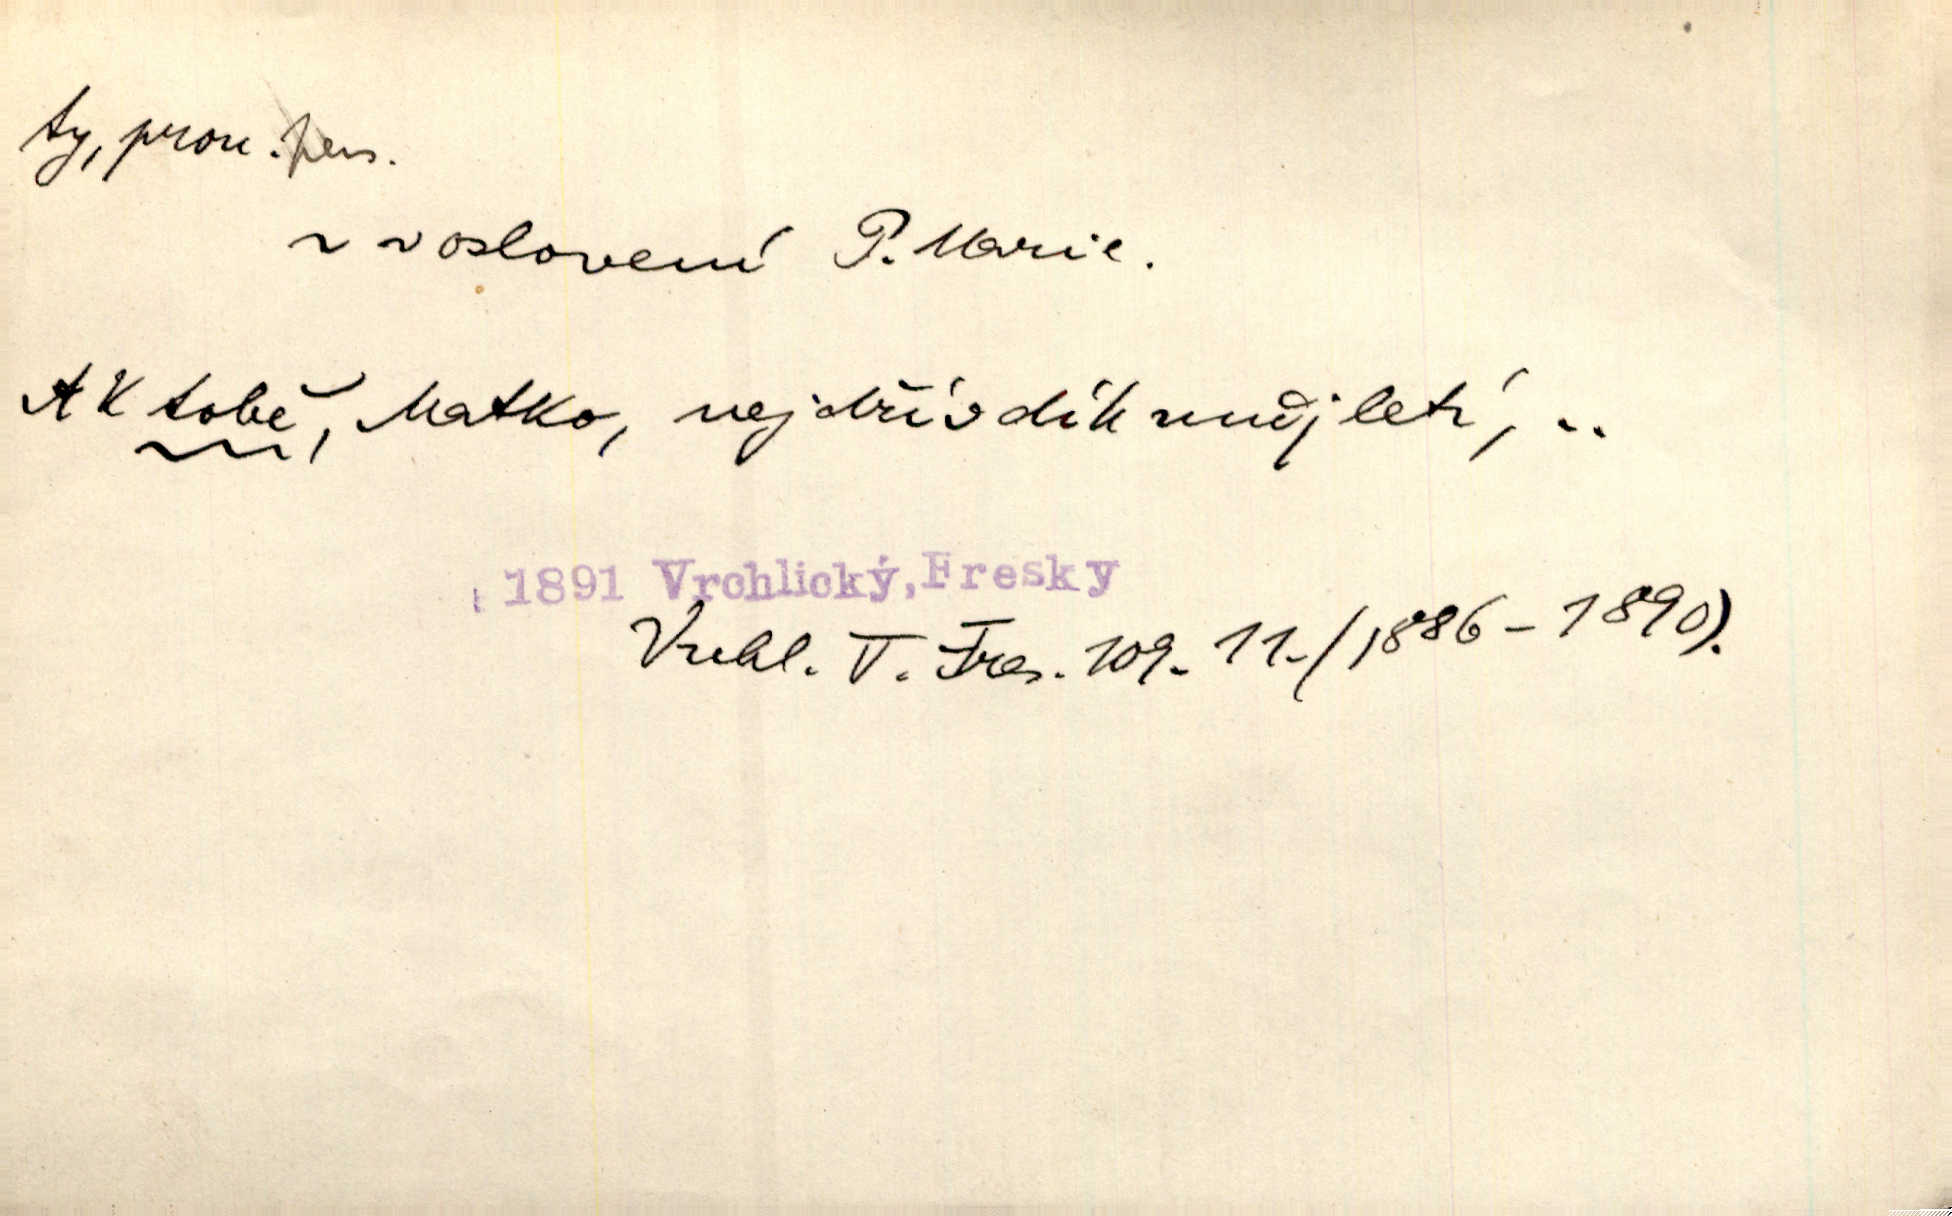 ty, pron. pers.
v oslovení P. Marie.
A k tobě, Matko, nejdřív dík můj letí, ..
1891 Vrchlický, Fresky
Vrchl. T. Fres. 109. 11. (1886-1890).